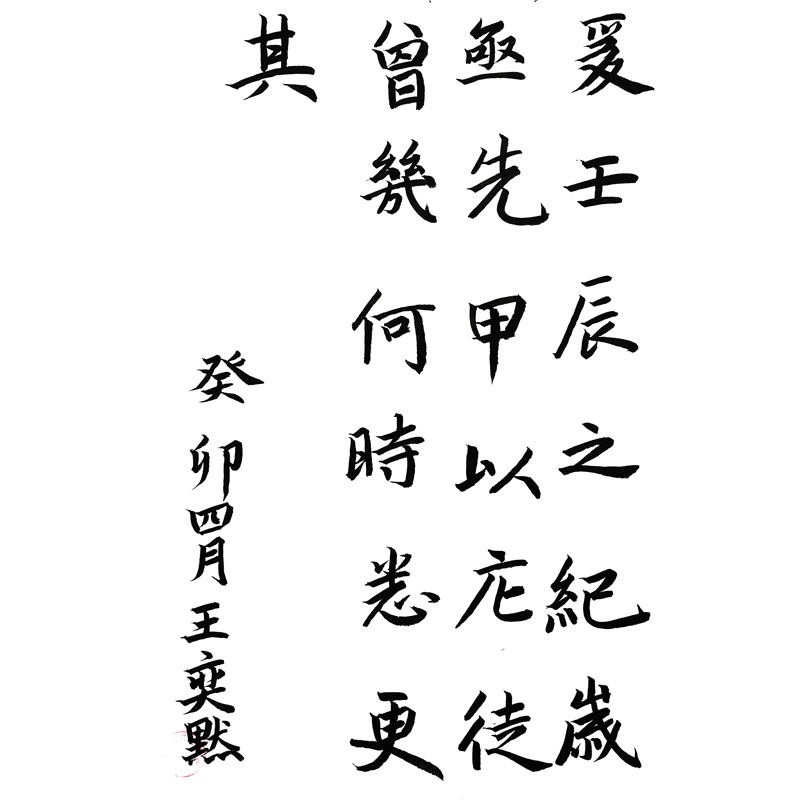 爰壬辰之紀歲
亟先甲以庀徒
曾幾何時悉更
其
癸卯四月王奕默